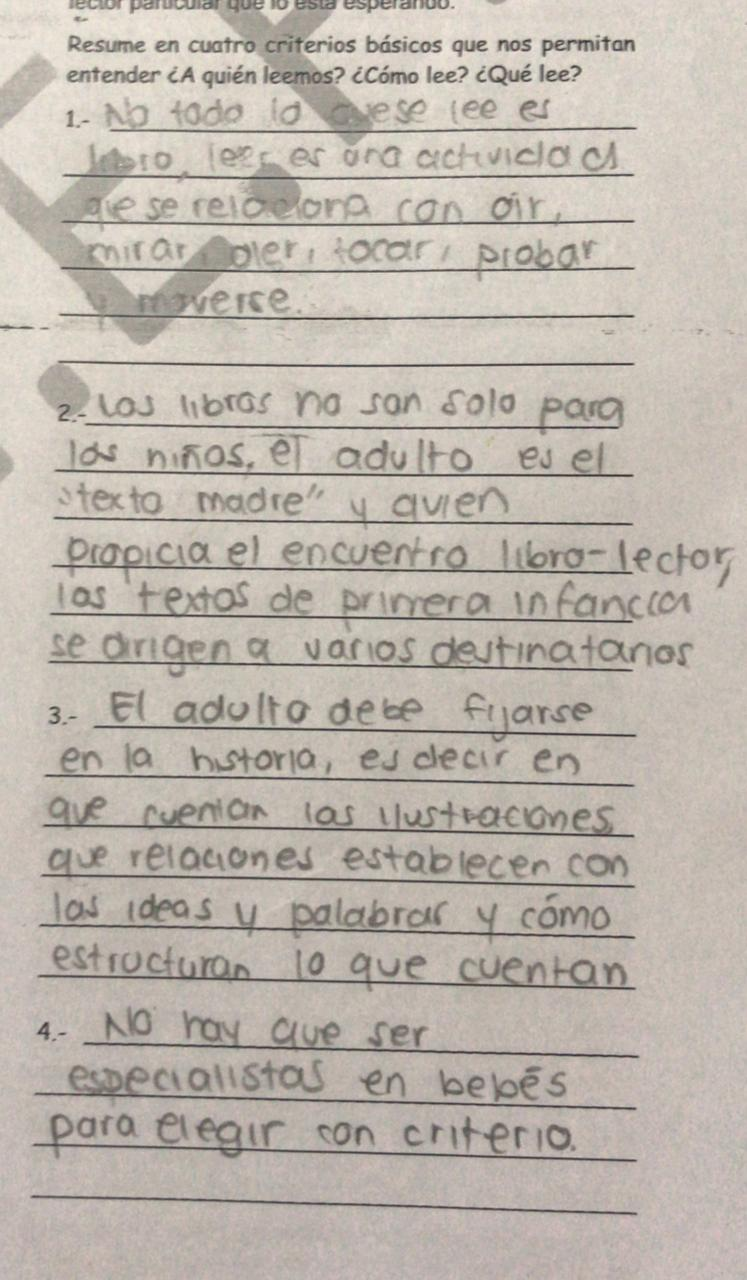 lector particular que lo está esperando.
Resume en cuatro criterios básicos que nos permitan
entender ¿A quién leemos? ¿Cómo lee? ¿Qué lee?
1.- No todo lo que se lee es
libro, leer es una actividad
que se relaciona con oir,
mirar, oler, tocar, probar
y moverse.
2.- Los libros no son solo para
los niños, el adulto es el
"texto madre" y quien
propicia el encuentro libro-lector,
los textos de primera infancia
se dirigen a varios destinatarios
3.- El adulto debe fijarse
en la historia, es decir en
que cuentan las ilustraciones,
que relaciones establecen con
las ideas y palabras y cómo
estructuran lo que cuentan
4.- No hay que ser
especialistas en bebés
para elegir con criterio.